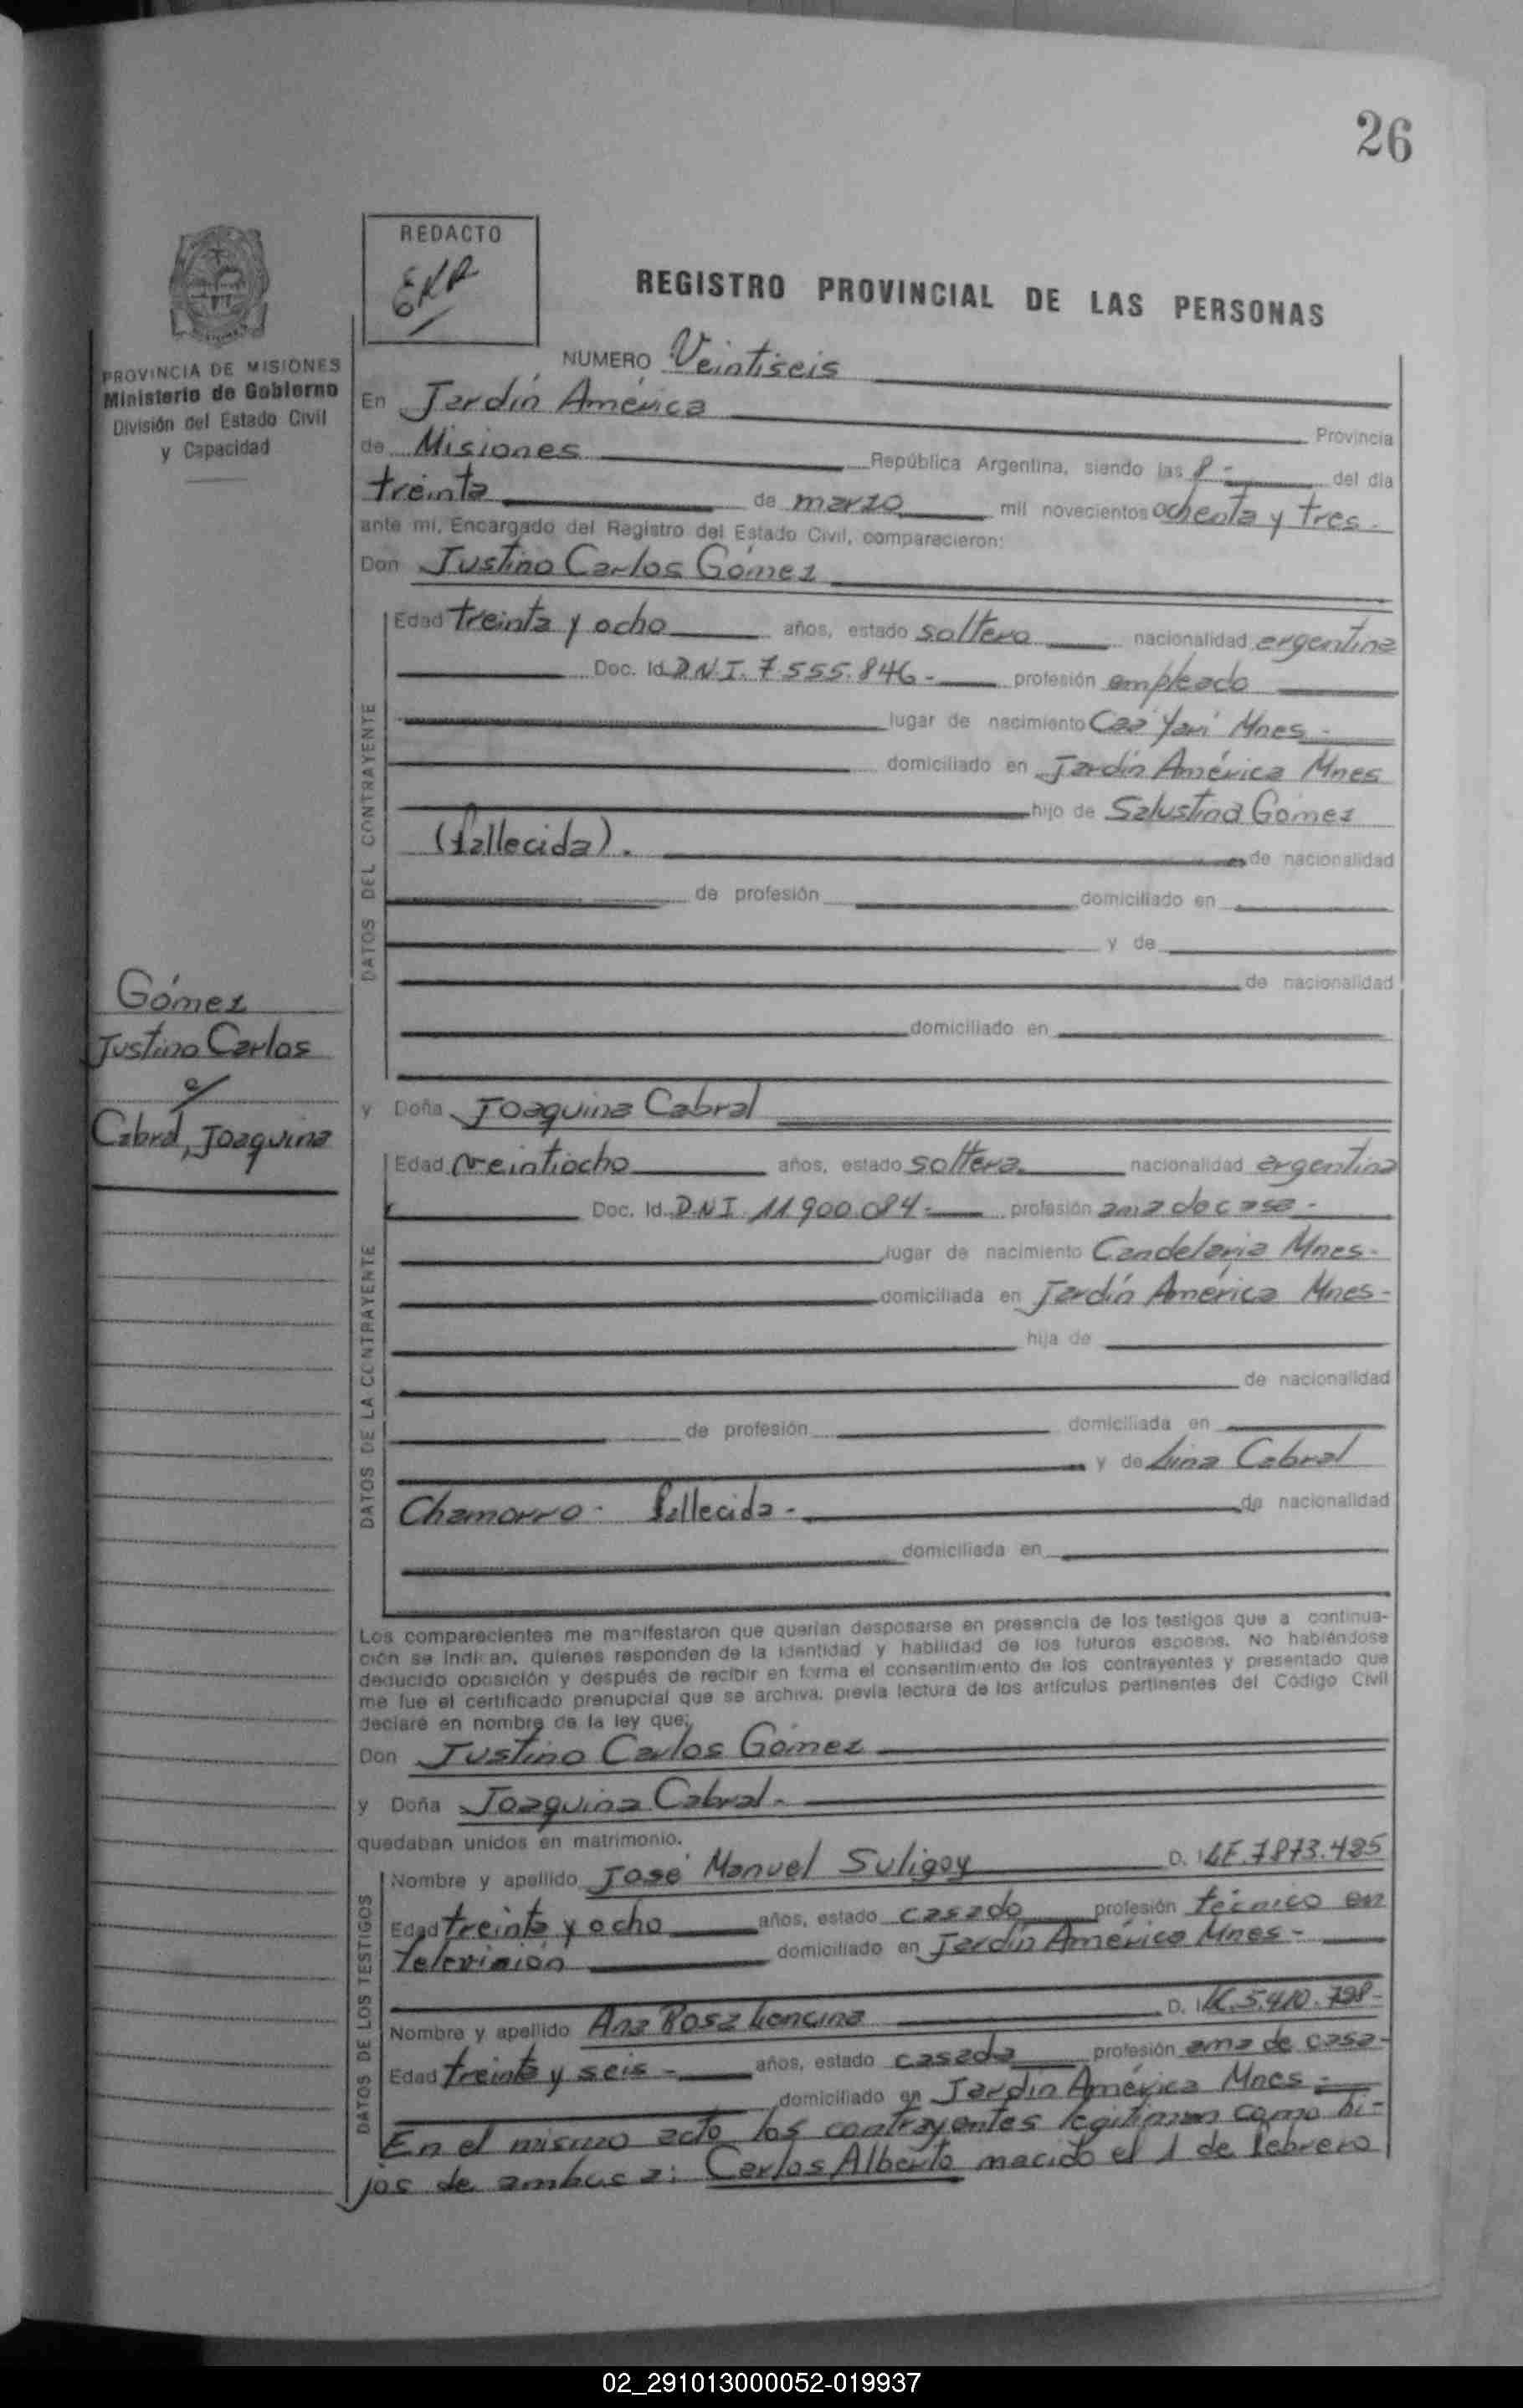 26
REDACTO
EKR
REGISTRO PROVINCIAL DE LAS PERSONAS
PROVINCIA DE MISIONES
Ministerio de Gobierno
División del Estado Civil
y Capacidad
NUMERO Veintiseis
En Jardín América Provincia
de Misiones República Argentina, siendo las 8 - del día
treinta de marzo mil novecientos ochenta y tres.
ante mí, Encargado del Registro del Estado Civil, comparecieron:
Don Justino Carlos Gómez
DATOS DEL CONTRAYENTE
Edad treinta y ocho años, estado soltero nacionalidad argentina
Doc. Id. D.N.I. 7.555.846.- profesión empleado
lugar de nacimiento Caá Yarí Mnes -
domiciliado en Jardín América Mnes
hijo de Salustina Gómez
(fallecida). de nacionalidad
de profesión domiciliado en
y de
de nacionalidad
domiciliado en
Gómez
Justino Carlos
c/
Cabral, Joaquina
y Doña Joaquina Cabral
DATOS DE LA CONTRAYENTE
Edad veintiocho años, estado soltera nacionalidad argentina
Doc. Id. D.N.I. 11.900.084.- profesión ama de casa -
lugar de nacimiento Candelaria Mnes.-
domiciliada en Jardín América Mnes -
hija de
de nacionalidad
de profesión domiciliada en
y de Lina Cabral
Chamorro - fallecida - de nacionalidad
domiciliada en
Los comparecientes me manifestaron que querían desposarse en presencia de los testigos que a continua-
ción se indican, quienes responden de la identidad y habilidad de los futuros esposos. No habiéndose
deducido oposición y después de recibir en forma el consentimiento de los contrayentes y presentado que
me fue el certificado prenupcial que se archiva, previa lectura de los artículos pertinentes del Código Civil
declaré en nombre de la ley que:
Don Justino Carlos Gómez
y Doña Joaquina Cabral.-
quedaban unidos en matrimonio.
DATOS DE LOS TESTIGOS
Nombre y apellido José Manuel Suligoy D. I. LE. 7.873.485
Edad treinta y ocho años, estado casado profesión técnico en
televisión domiciliado en Jardín América Mnes -
Nombre y apellido Ana Rosa D. I. LC. 5.410.798-
Edad treinta y seis - años, estado casada profesión ama de casa -
domiciliado en Jardín América Mnes -
En el mismo acto los contrayentes legitiman como hi-
jos de ambos a: Carlos Alberto nacido el 1 de febrero
02_291013000052-019937